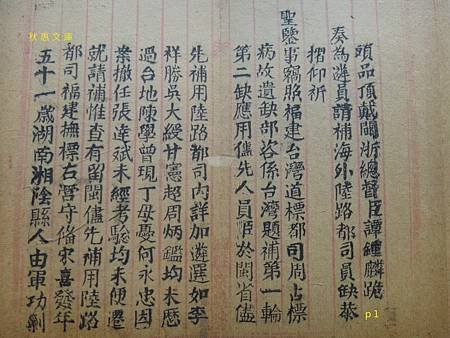 秋惠文庫
頭品頂戴閩浙總督臣譚鍾麟跪
奏為遴員請補海外陸路都司員缺恭
摺仰祈
聖鑒事竊照福建台灣道標都司周占標
病故遺缺部咨係台灣題補第一輪
第二缺應用儘先人員臣於閩省儘
先補用陸路都司內詳加遴選如李
祥勝吳大綬甘憲超周炳鑑均未歷
過台地陳學曾現丁母憂何永忠因
案撤任張達斌未經考驗均未便遷
就請補惟查有留閩儘先補用陸路
都司福建撫標右營守俻宋喜發年
五十一歲湖南湘陰縣人由軍功剿
p1